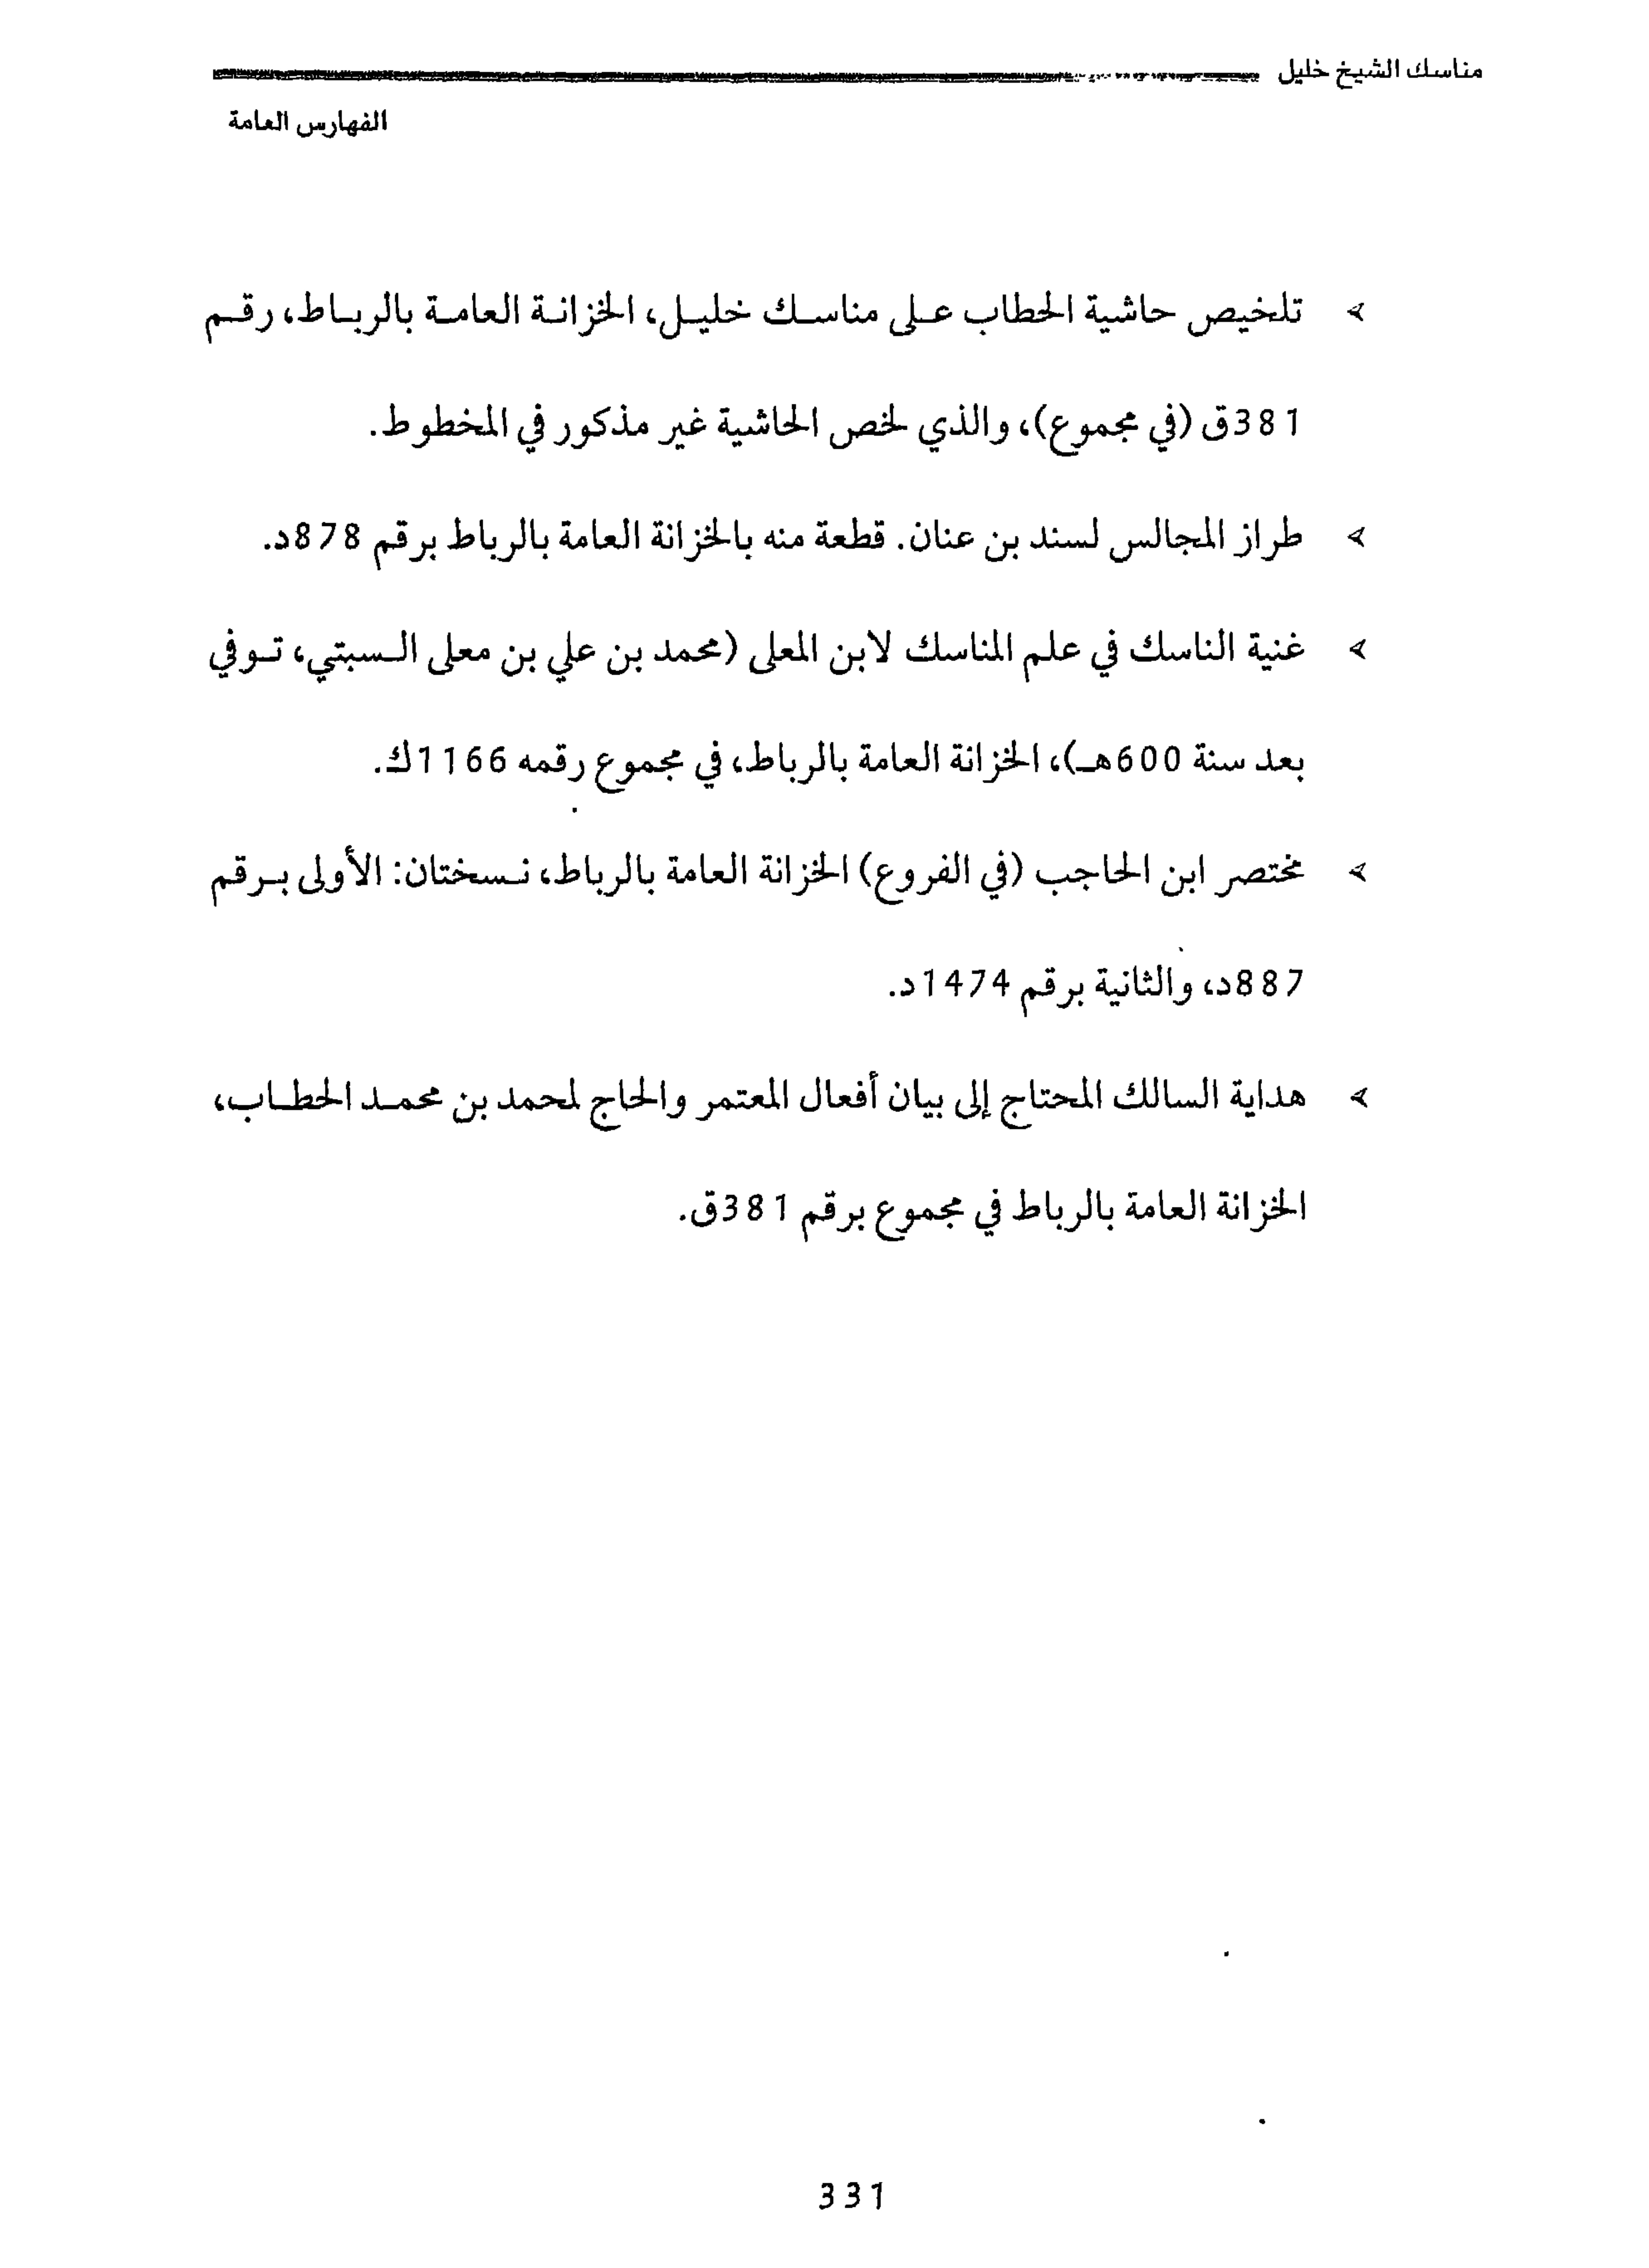 مناسك الشيخ خليل
الفهارس العامة
➢ تلخيص حاشية الحطاب على مناسك خليل، الخزانة العامة بالرباط، رقم
381ق (في مجموع)، والذي لخص الحاشية غير مذكور في المخطوط.
➢ طراز المجالس لسند بن عنان. قطعة منه بالخزانة العامة بالرباط برقم 878د.
➢ غنية الناسك في علم المناسك لابن المعلى (محمد بن علي بن معلى السبتي، توفي
بعد سنة 600هـ)، الخزانة العامة بالرباط، في مجموع رقمه 1166ك.
➢ مختصر ابن الحاجب (في الفروع) الخزانة العامة بالرباط، نسختان: الأولى برقم
887د، والثانية برقم 1474د.
➢ هداية السالك المحتاج إلى بيان أفعال المعتمر والحاج لمحمد بن محمد الحطاب،
الخزانة العامة بالرباط في مجموع برقم 381ق.
331